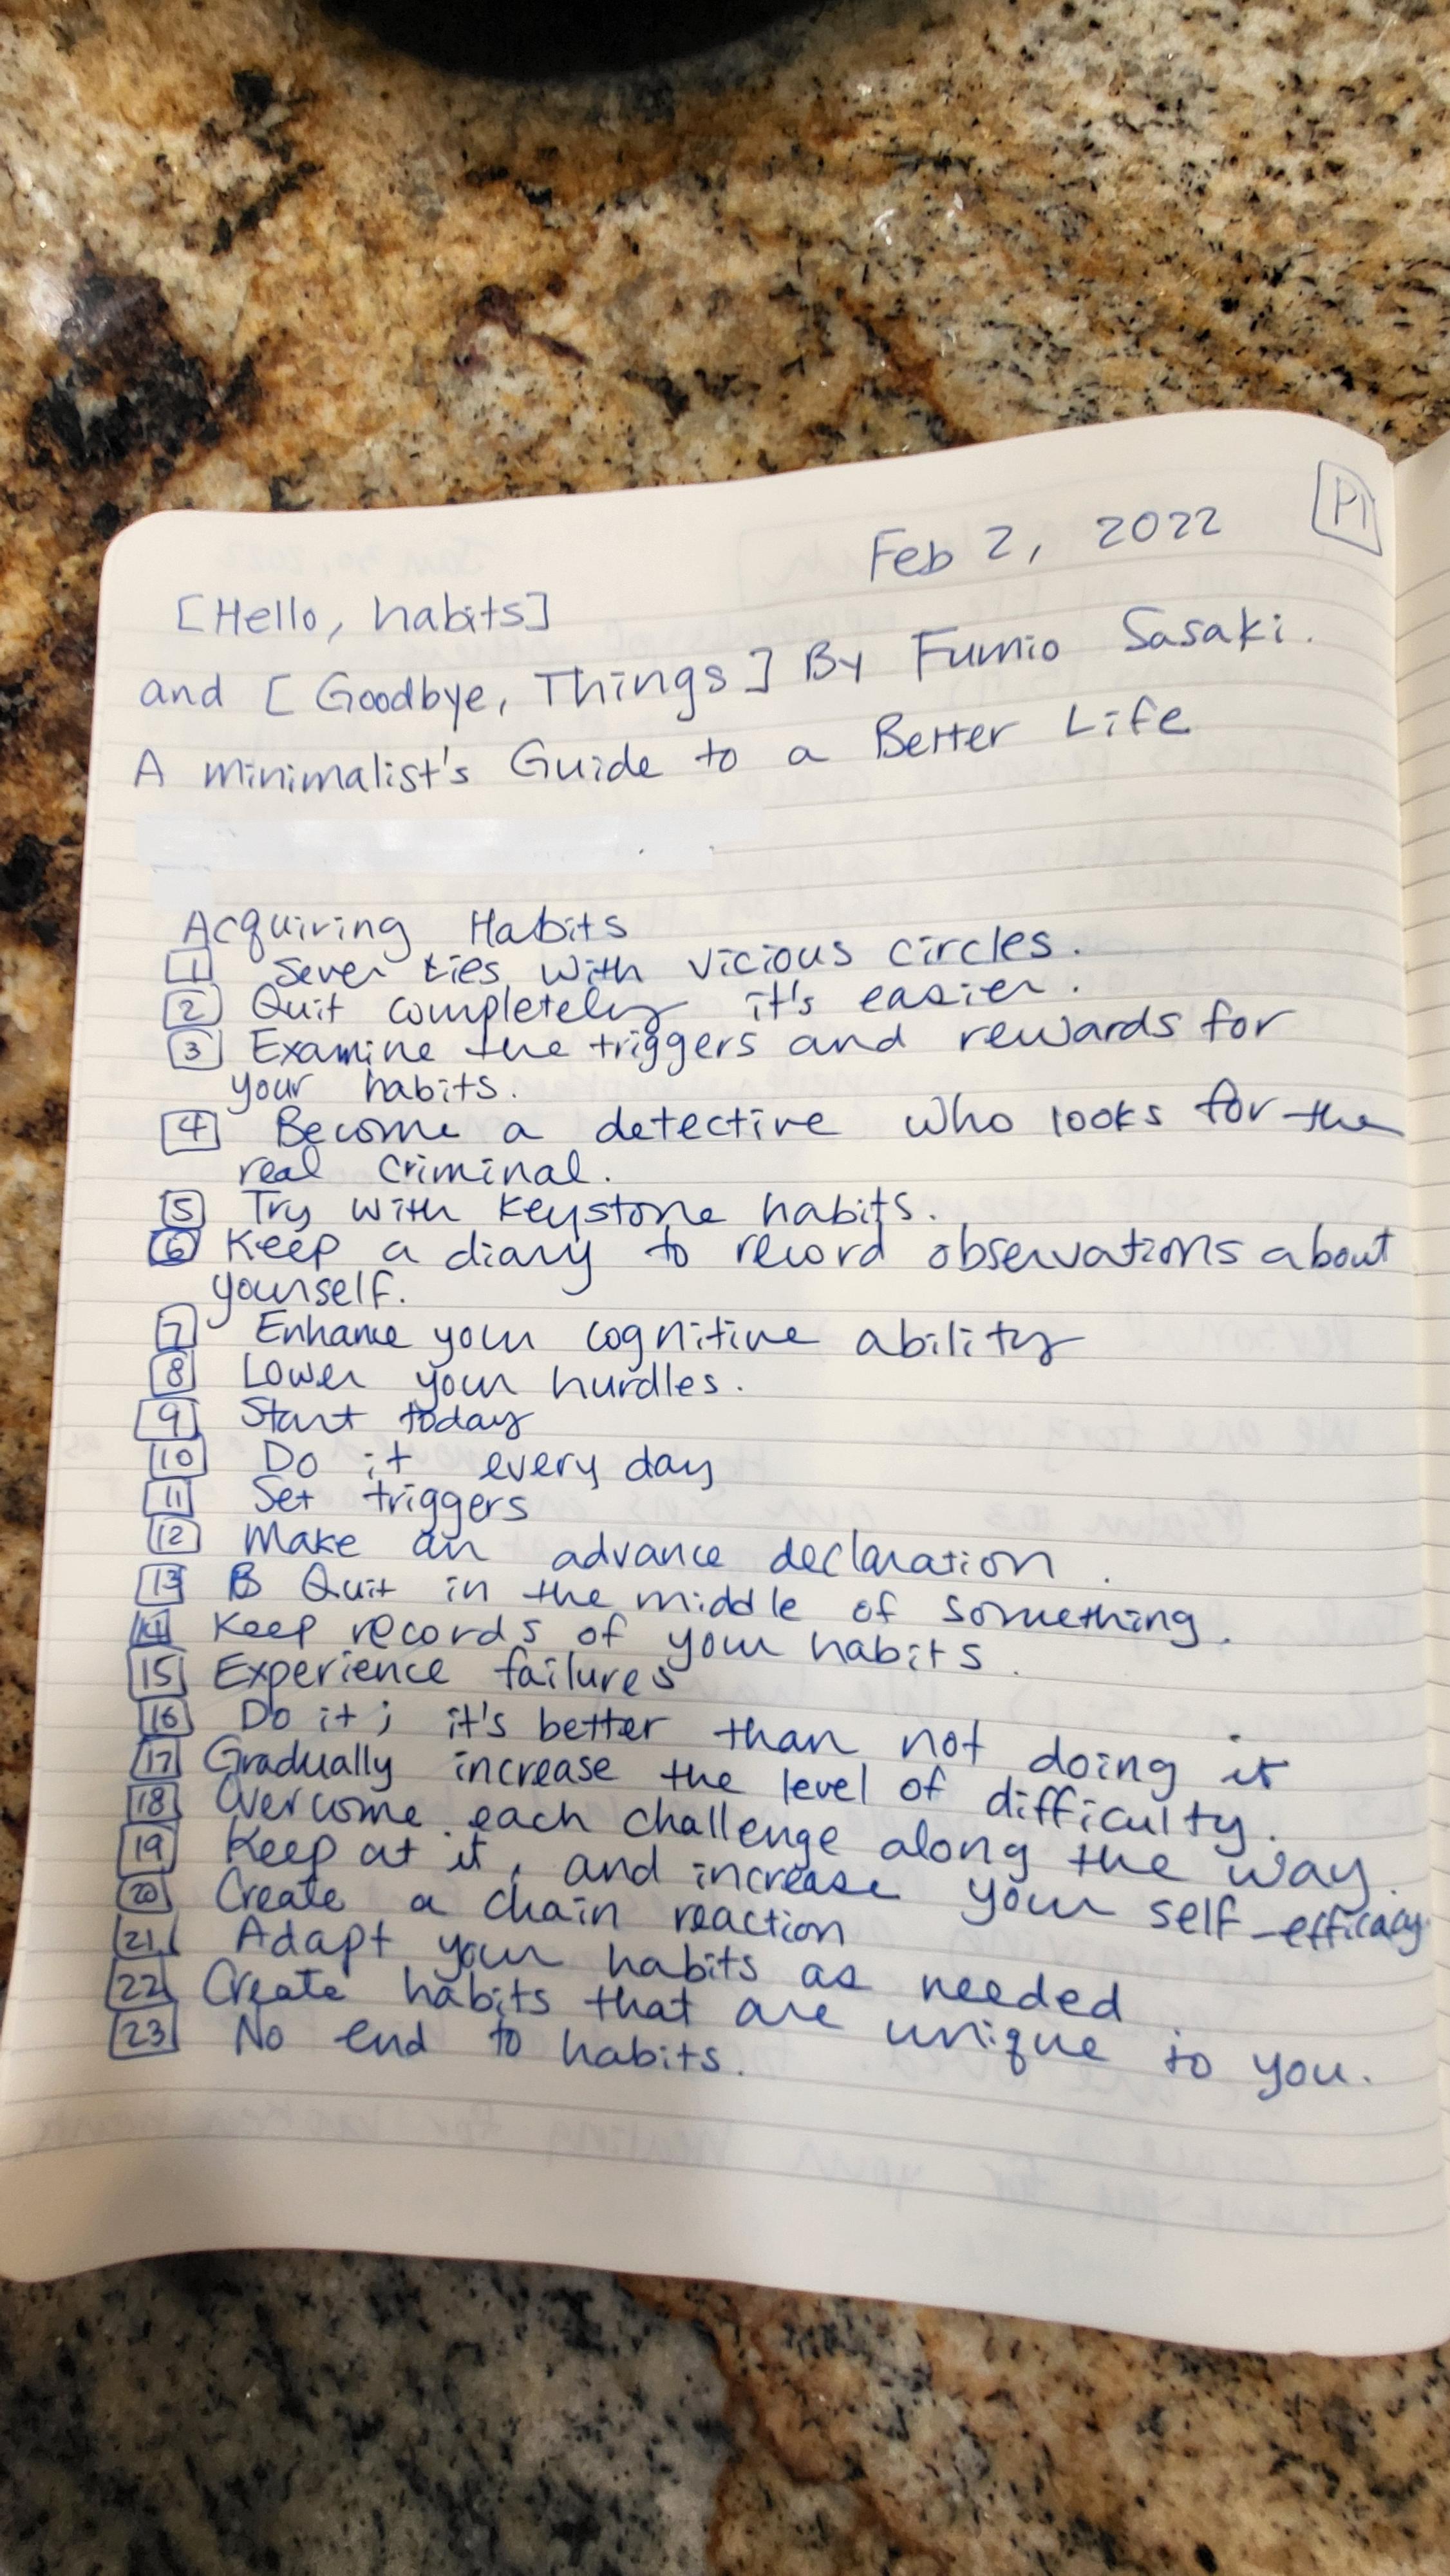 P1
Feb 2, 2022
[Hello, habits]
and [Goodbye, Things] By Fumio Sasaki.
A minimalist's Guide to a Better Life
Acquiring Habits
1 Sever ties with vicious circles.
2 Quit completely it's easier.
3 Examine the triggers and rewards for
your habits.
4 Become a detective who looks for the
real criminal.
5 Try with keystone habits.
6 Keep a diary to record observations about
yourself.
7 Enhance your cognitive ability
8 Lower your hurdles.
9 Start today
10 Do it every day
11 Set triggers
12 Make an advance declaration.
13 B Quit in the middle of something.
14 Keep records of your habits.
15 Experience failures
16 Do it; it's better than not doing it
17 Gradually increase the level of difficulty.
18 Overcome each challenge along the way.
19 Keep at it, and increase your self-efficacy
20 Create a chain reaction
21 Adapt your habits as needed
22 Create habits that are unique to you.
23 No end to habits.